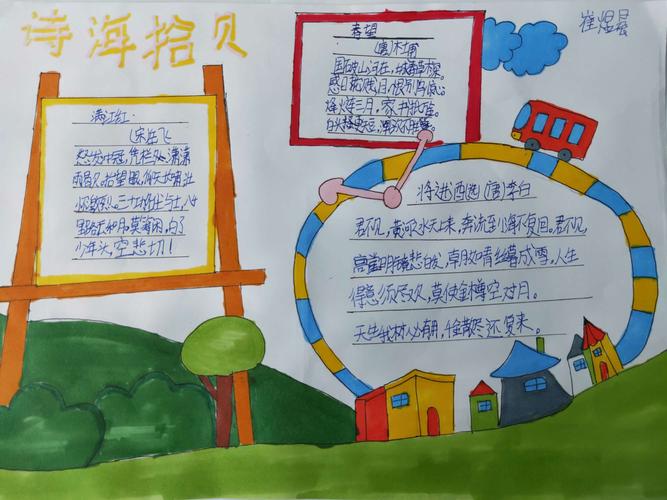 诗海拾贝
崔煜晨
满江红
(宋)岳飞
怒发冲冠,凭栏处、潇潇
雨歇。抬望眼,仰天长啸,壮
怀激烈。三十功名尘与土,八千
里路云和月。莫等闲,白了
少年头,空悲切!
春望
(唐)杜甫
国破山河在,城春草木深。
感时花溅泪,恨别鸟惊心
烽火连三月,家书抵万金。
白头搔更短,浑欲不胜簪。
将进酒(节选)(唐)李白
君不见,黄河水天上来,奔流至海不复回。君不见,
高堂明镜悲白发,朝如青丝暮成雪,人生
得意须尽欢,莫使金樽空对月。
天生我材必有用,千金散尽还复来。